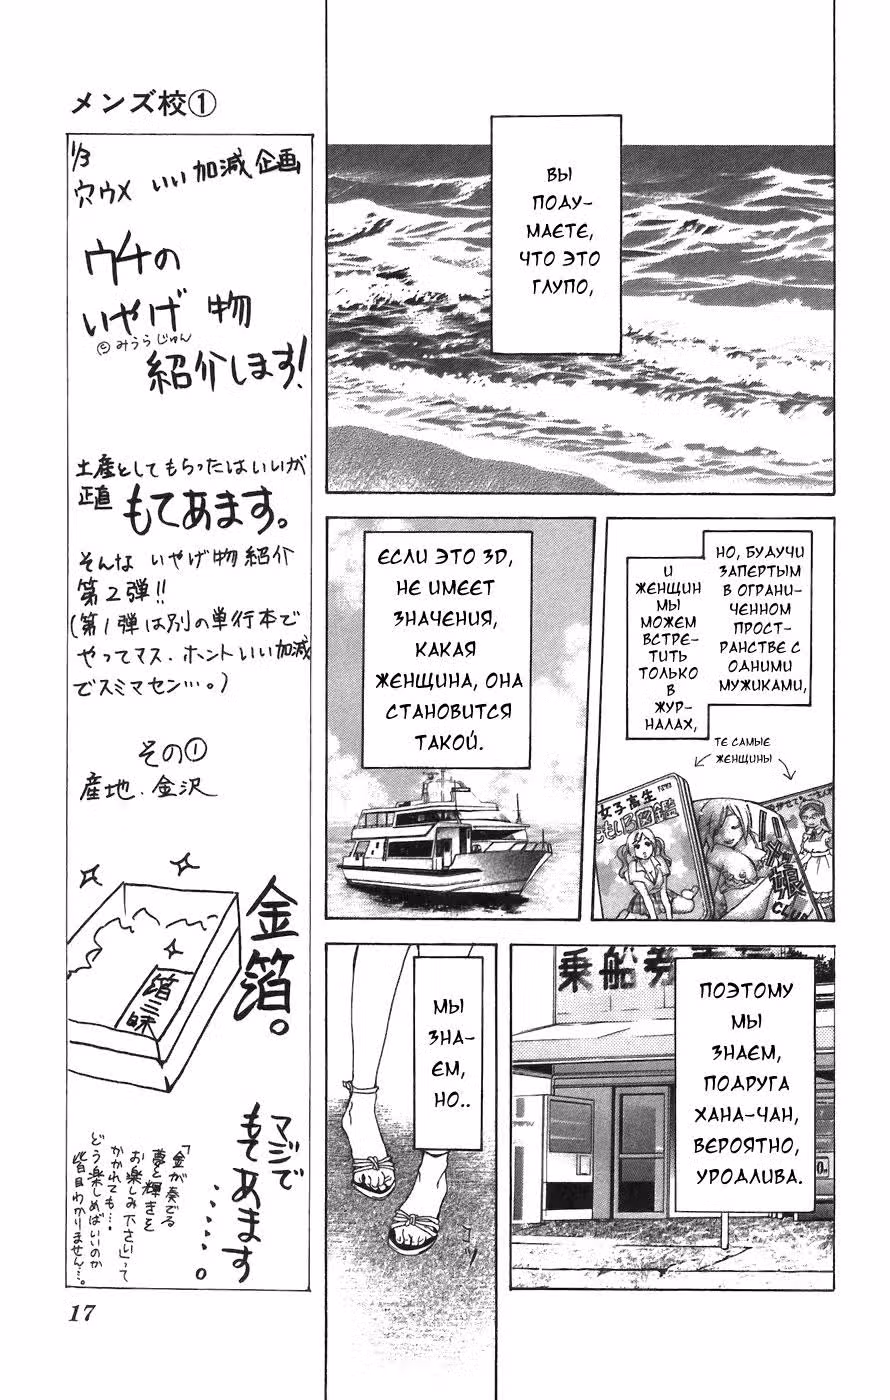 メンズ校①
1/3
穴ウメ いい加減企画
ウチの
いやげ物
©みうらじゅん
紹介します!
土産としてもらったはいいが
正直 もてあます。
そんな いやげ物紹介
第2弾!!
(第1弾は別の単行本で
やってマス. ホントいい加減
でスミマセン…。)
その①
産地. 金沢
金箔。
箔三昧
マジで
もてあます
……。
「金が奏でる
夢と輝きを
お楽しみ下さい」って
かかれても…。
どう楽しめばいいのか
皆目わかりません…。
17
ВЫ
ПОДУ-
МАЕТЕ,
ЧТО ЭТО
ГЛУПО,
НО, БУДУЧИ
ЗАПЕРТЫМ
В ОГРАНИ-
ЧЕННОМ
ПРОСТ-
РАНСТВЕ С
ОДНИМИ
МУЖИКАМИ,
И
ЖЕНЩИН
МЫ
МОЖЕМ
ВСТРЕ-
ТИТЬ
ТОЛЬКО
В
ЖУР-
НАЛАХ,
ТЕ САМЫЕ
ЖЕНЩИНЫ
女子高生
図鑑
娘
CLUB
ЕСЛИ ЭТО 3D,
НЕ ИМЕЕТ
ЗНАЧЕНИЯ,
КАКАЯ
ЖЕНЩИНА, ОНА
СТАНОВИТСЯ
ТАКОЙ.
乗船券
ПОЭТОМУ
МЫ
ЗНАЕМ,
ПОДРУГА
ХАНА-ЧАН,
ВЕРОЯТНО,
УРОДЛИВА.
МЫ
ЗНА-
ЕМ,
НО..
コツ